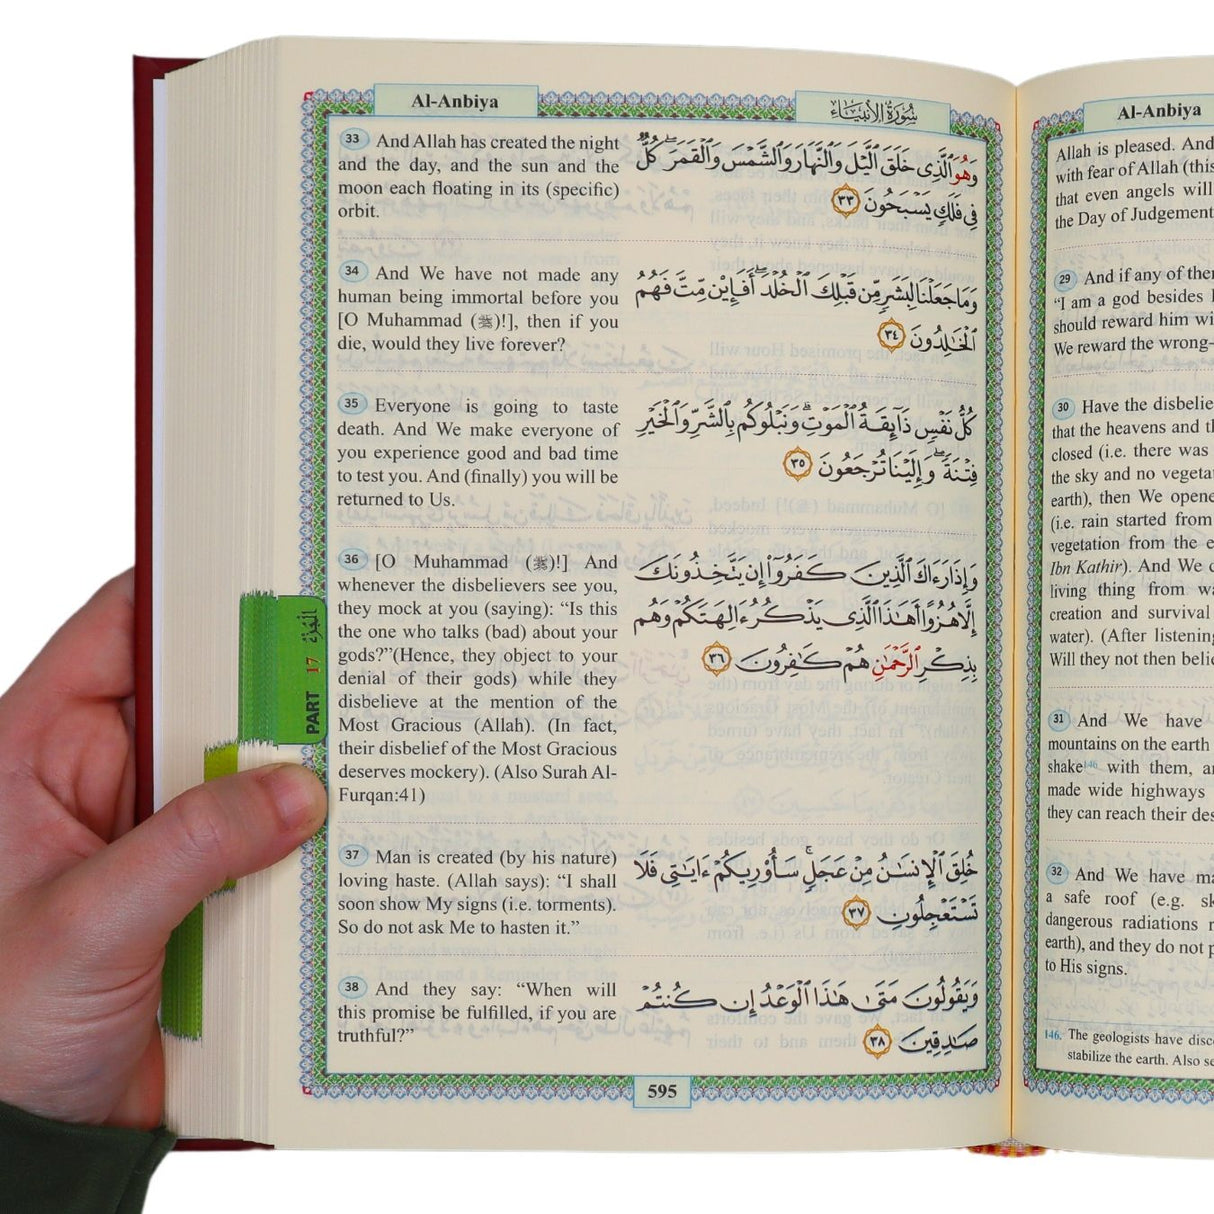 Al-Anbiya
سُورَةُ الأَنْبِيَاء
33 And Allah has created the night
and the day, and the sun and the
moon each floating in its (specific)
orbit.
وَهُوَ ٱلَّذِى خَلَقَ ٱلَّيْلَ وَٱلنَّهَارَ وَٱلشَّمْسَ وَٱلْقَمَرَ ۖ كُلٌّ
فِى فَلَكٍ يَسْبَحُونَ ٣٣
34 And We have not made any
human being immortal before you
[O Muhammad (ﷺ)!], then if you
die, would they live forever?
وَمَا جَعَلْنَا لِبَشَرٍ مِّن قَبْلِكَ ٱلْخُلْدَ ۖ أَفَإِيْن مِّتَّ فَهُمُ
ٱلْخَـٰلِدُونَ ٣٤
35 Everyone is going to taste
death. And We make everyone of
you experience good and bad time
to test you. And (finally) you will be
returned to Us.
كُلُّ نَفْسٍ ذَآئِقَةُ ٱلْمَوْتِ ۗ وَنَبْلُوكُم بِٱلشَّرِّ وَٱلْخَيْرِ
فِتْنَةً ۖ وَإِلَيْنَا تُرْجَعُونَ ٣٥
36 [O Muhammad (ﷺ)!] And
whenever the disbelievers see you,
they mock at you (saying): “Is this
the one who talks (bad) about your
gods?”(Hence, they object to your
denial of their gods) while they
disbelieve at the mention of the
Most Gracious (Allah). (In fact,
their disbelief of the Most Gracious
deserves mockery). (Also Surah Al-
Furqan:41)
وَإِذَا رَءَاكَ ٱلَّذِينَ كَفَرُوٓا۟ إِن يَتَّخِذُونَكَ
إِلَّا هُزُوًا أَهَـٰذَا ٱلَّذِى يَذْكُرُ ءَالِهَتَكُمْ وَهُم
بِذِكْرِ ٱلرَّحْمَـٰنِ هُمْ كَـٰفِرُونَ ٣٦
37 Man is created (by his nature)
loving haste. (Allah says): “I shall
soon show My signs (i.e. torments).
So do not ask Me to hasten it.”
خُلِقَ ٱلْإِنسَـٰنُ مِنْ عَجَلٍ ۚ سَأُو۟رِيكُمْ ءَايَـٰتِى فَلَا
تَسْتَعْجِلُونِ ٣٧
38 And they say: “When will
this promise be fulfilled, if you are
truthful?”
وَيَقُولُونَ مَتَىٰ هَـٰذَا ٱلْوَعْدُ إِن كُنتُمْ
صَـٰدِقِينَ ٣٨
595
PART 17 الجزء
Al-Anbiya
Allah is pleased. And
with fear of Allah (this
that even angels will
the Day of Judgement
29 And if any of them
“I am a god besides
should reward him
We reward the wrong-
30 Have the
that the heavens and
closed (i.e. there was
the sky and no
earth), then We
(i.e. rain started from
vegetation from the
Ibn Kathir). And We
living thing from
creation and survival
water). (After listening
Will they not then
31 And We have
mountains on the earth
shake146 with them,
made wide highways
they can reach their
32 And We have
a safe roof (e.g.
dangerous radiations
earth), and they do not
to His signs.
146. The geologists have
stabilize the earth. Also